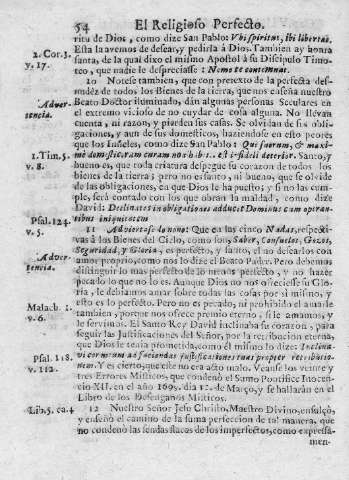 54 El Religioso Perfecto.
ritu de Dios, como dize San Pablo: Vbi spiritus, ibi libertas.
2. Cor. 3. Esta la avemos de desear, y pedirla à Dios. Tambien ay honra
v. 17. santa, de la qual dixo el mismo Apostol à su Discipulo Timo-
teo, que nadie le despreciasse: Nemo te contemnat.
10 Notese tambien, que con pretexto de la perfecta desnu-
dèz de todos los Bienes de la tierra, que nos enseña nuestro
Adver- Beato Doctor iluminado, dàn algunas personas Seculares en
tencia. el extremo vicioso de no cuydar de cosa alguna. No llevan
cuenta, ni razon, y pierden sus casas. Se olvidan de sus obli-
gaciones, y aun de sus domesticos, haziendose en esto peores
que los Infieles, como dize San Pablo: Qui suorum, & maxi-
1. Tim. 5. mè domesticorum curam non habet, est infideli deterior. Santo, y
v. 8. bueno es, que la criatura despegue su corazon de todos los
bienes de la tierra; pero no es santo, ni bueno, que se olvide de
las obligaciones, en que Dios le ha puesto; y si no las cum-
ple, serà contado con los que obran la maldad, como dize
David: Declinantes in obligationes adducet Dominus cum operan-
Psal. 124. tibus iniquitatem
v. 5. 11 Adviertase lo uno: Que en las cinco Nadas, respecti-
vas à los Bienes del Cielo, como son Saber, Consuelos, Gozos,
Adver- Seguridad, y Gloria, es perfecto, y santo, el no desearlos con
tencia. amor proprio, como nos lo dize el Beato Padre. Pero debemos
distinguir lo mas perfecto de lo menos perfecto, y no hazer
pecado lo que no lo es. Aunque Dios no nos ofreciesse su Glo-
ria, le debiamos amar sobre todas las cosas por si mismo, y
Malach. 1. esto es lo perfecto. Pero no es pecado, ni prohibido el amarle
v. 6. tambien, porque nos ofrece premio eterno, si le amamos, y
le servimos. El Santo Rey David inclinaba su corazon, para
seguir las Justificaciones del Señor, por la retribucion eterna,
que Dios le tenia prometida, como èl mismo lo dize: Inclina-
Psal. 118. vi cor meum ad faciendas justificationes tuas propter retributio-
v. 112. nem. Y es cierto, que este no era acto malo. Veanse los veinte y
tres Errores Misticos, que condenò el Sumo Pontifice Inocen-
cio XII. en el año 1699. dia 12. de Março, y se hallaràn en el
Libro de los Desengaños Misticos.
Lib. 5. ca. 4 12 Nuestro Señor Jesu Christo, Maestro Divino, ensalçò,
y enseñò el camino de la suma perfeccion de tal manera, que
no condenò las sendas flacas de los imperfectos, como expressa-
men-